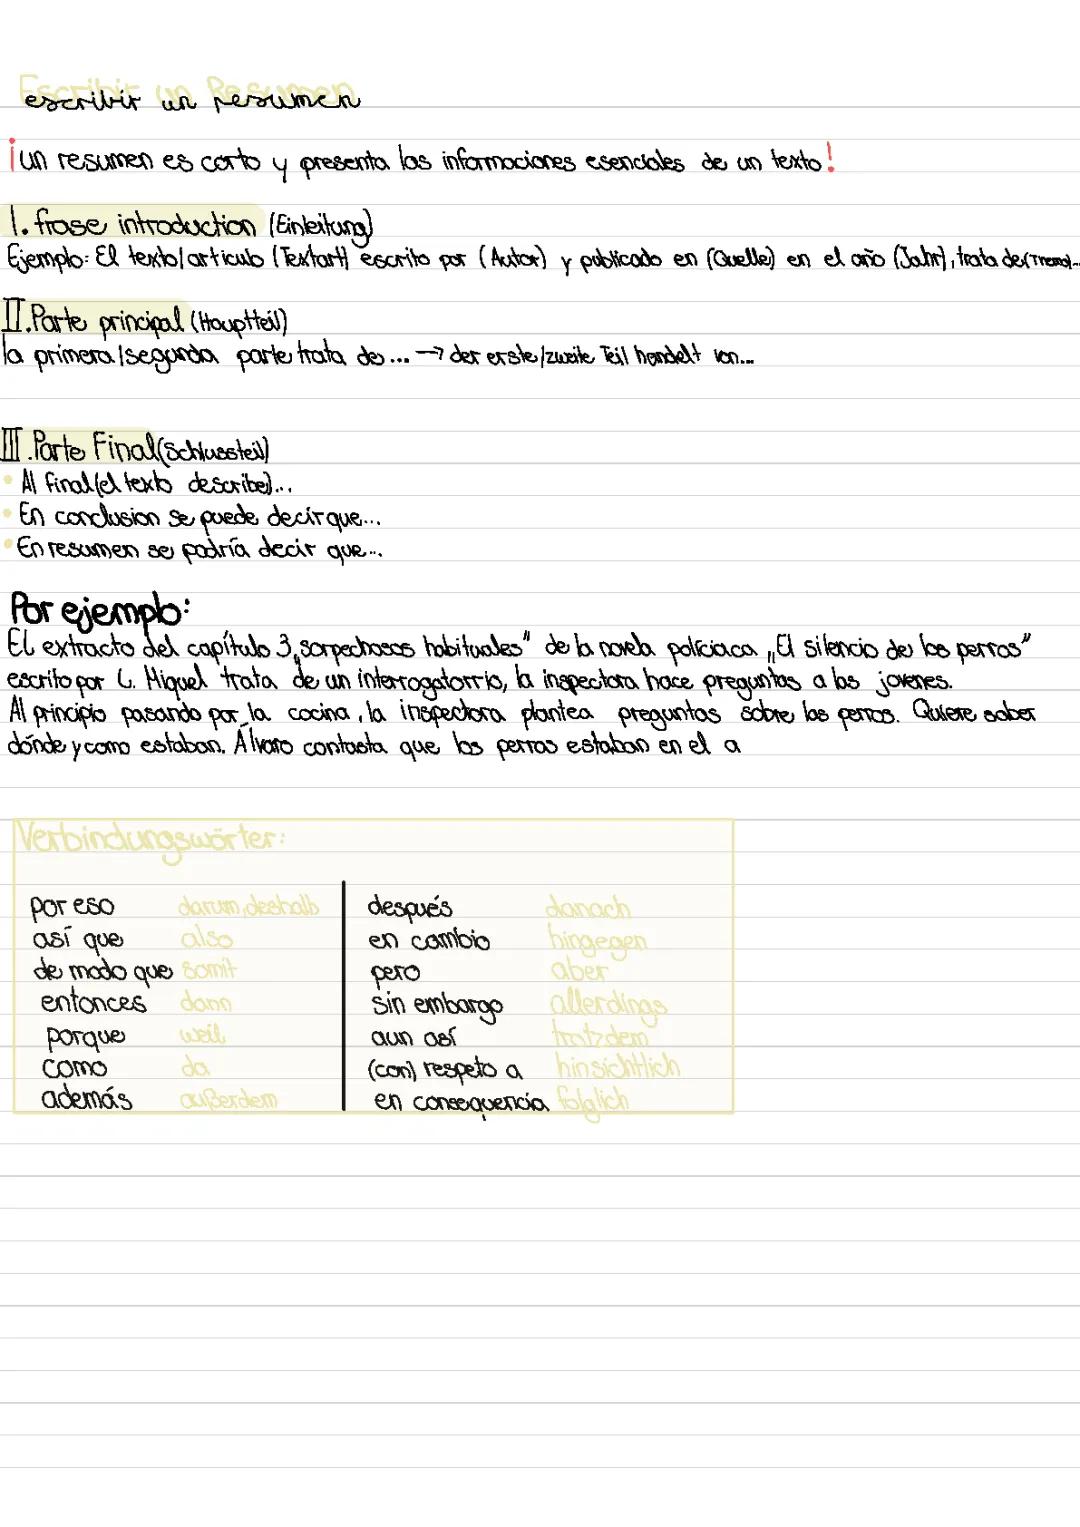 Escribir un Resumen
escribir un resumen
¡un resumen es corto y presenta las informaciones esenciales de un texto!
I. frase introduction (Einleitung)
Ejemplo: El texto/articulo (Textart) escrito por (Autor) y publicado en (Quelle) en el año (Jahr), trata de
II. Parte principal (Hauptteil)
la primera/segunda parte trata de ... → der erste/zweite Teil handelt von...
III. Parte Final (Schlussteil)
• Al final (el texto describe)...
• En conclusion se puede decir que...
• En resumen se podría decir que...
Por ejemplo:
El extracto del capítulo 3 „sorpechosos habituales" de la novela policiaca „El silencio de los perros"
escrito por C. Miquel trata de un interrogatorrio, la inspectora hace preguntas a los jovenes.
Al principio pasando por la cocina, la inspectora plantea preguntas sobre los perros. Quiere saber
dónde y como estaban. Álvaro contasta que los perros estaban en el a
Verbindungswörter:
por eso darum, deshalb después danach
así que also en cambio hingegen
de modo que somit pero aber
entonces dann sin embargo allerdings
porque weil aun así trotzdem
como da (con) respeto a hinsichtlich
además außerdem en consequencia folglich